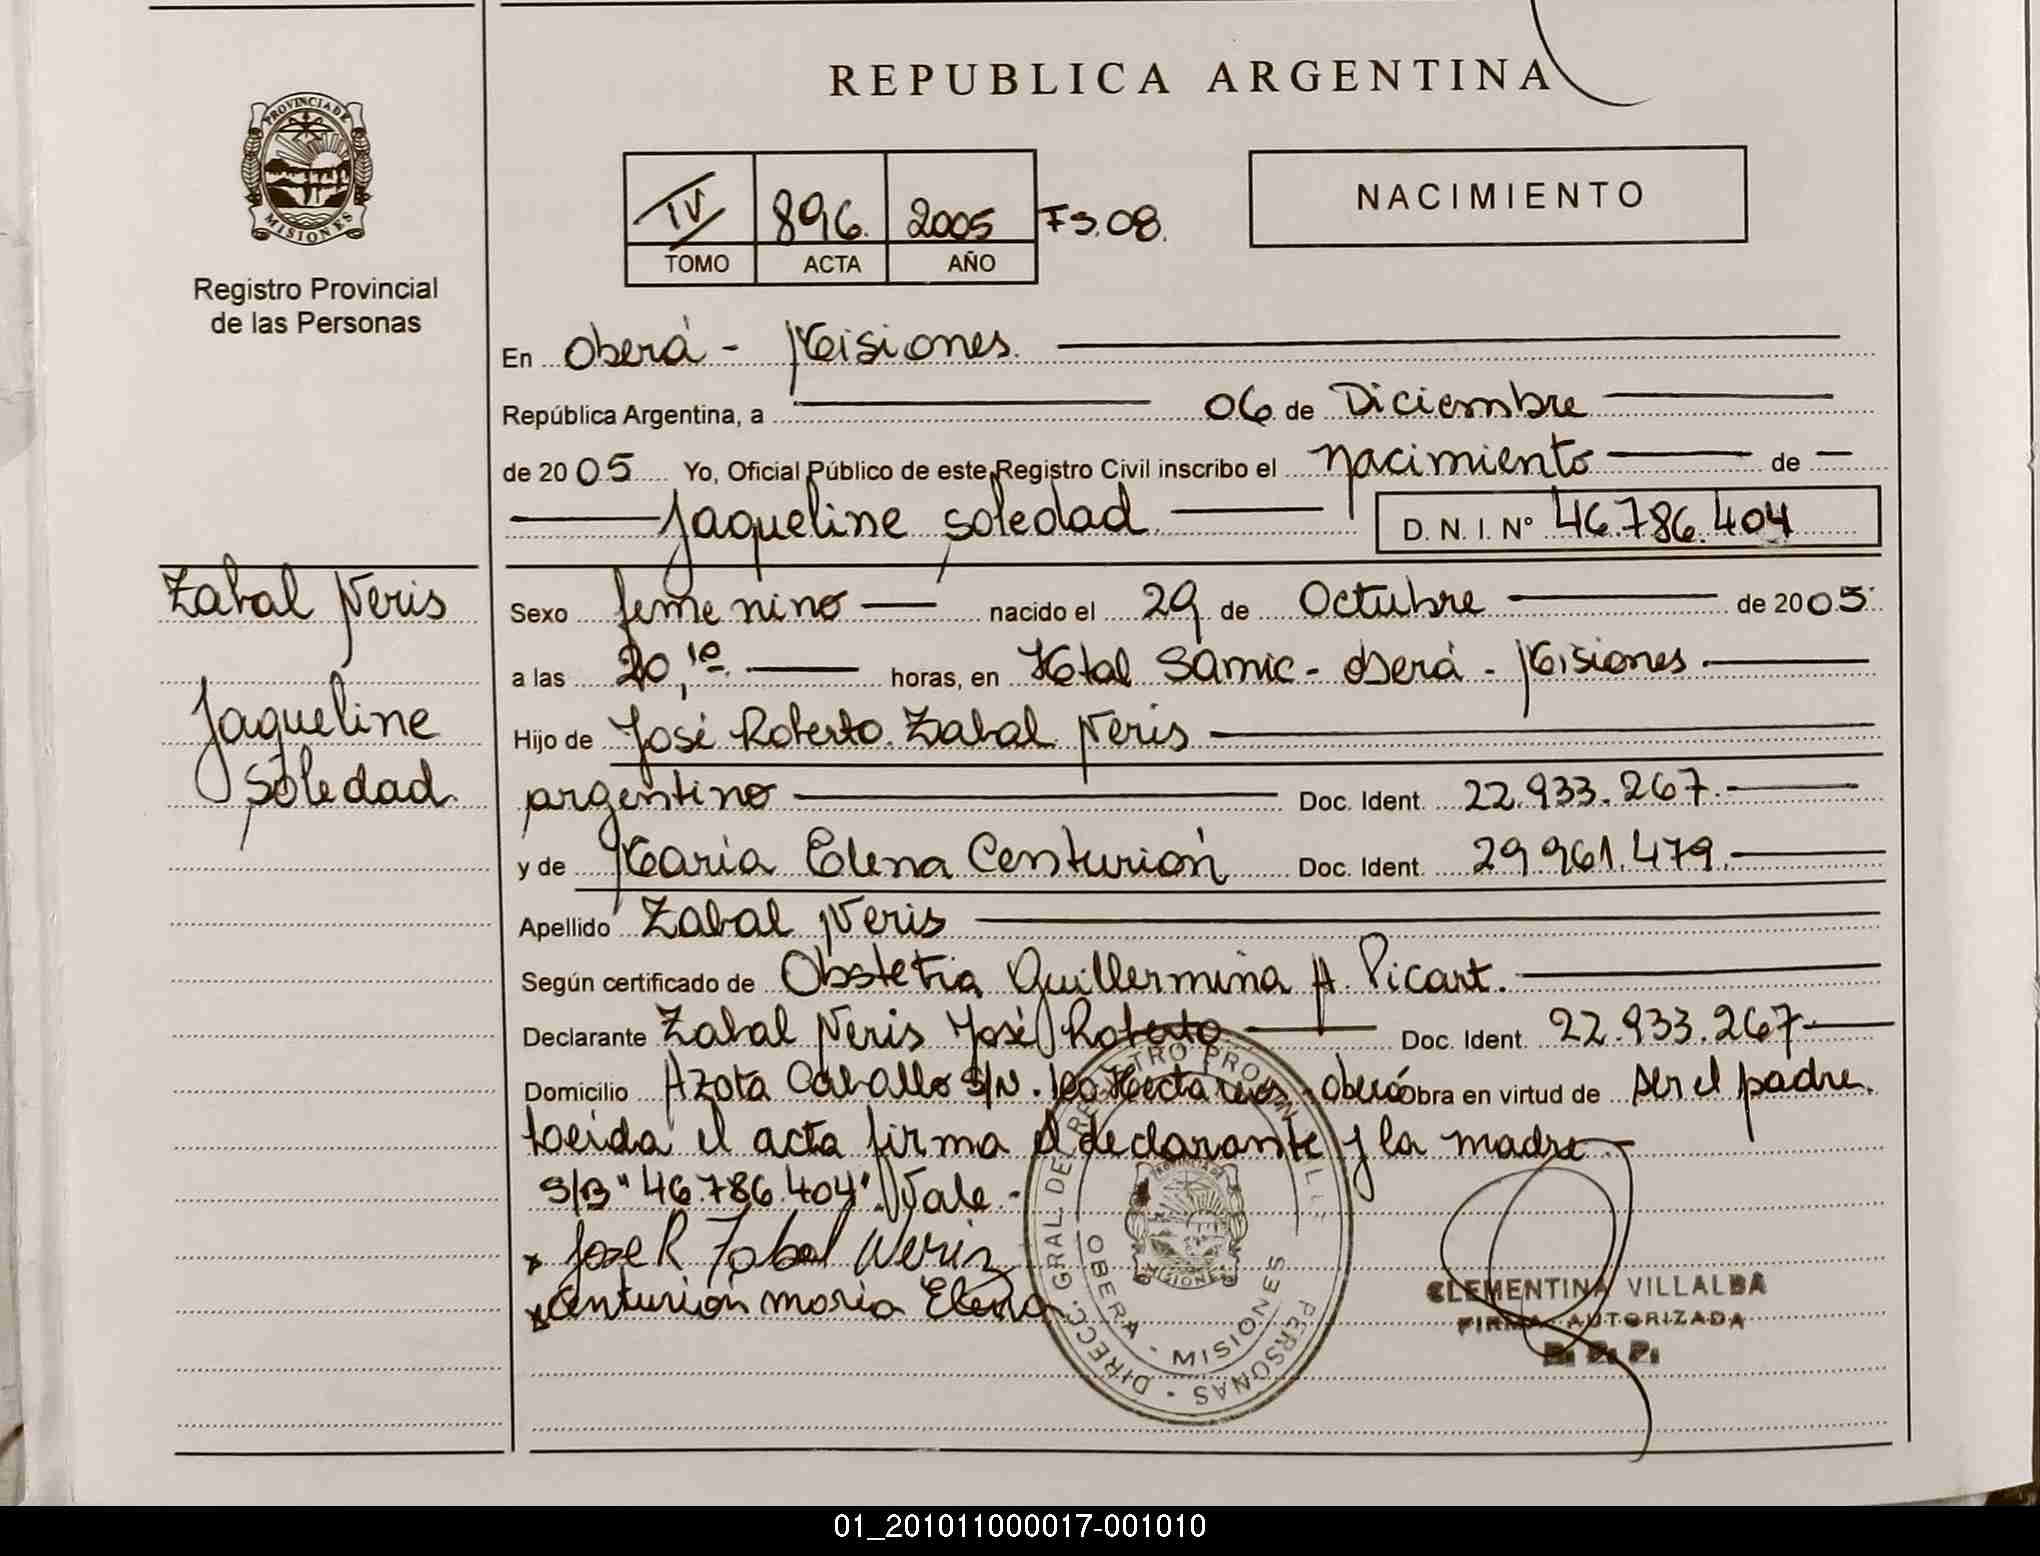 REPUBLICA ARGENTINA
PROVINCIA DE
MISIONES
Registro Provincial
de las Personas
IV 896. 2005 FS.08.
TOMO ACTA AÑO
NACIMIENTO
En Oberá - Misiones.
República Argentina, a 06 de Diciembre
de 2005 Yo, Oficial Público de este Registro Civil inscribo el nacimiento de
Jaqueline Soledad D. N. I. Nº 46.786.404
Zabal Neris
Jaqueline
Soledad
Sexo femenino nacido el 29 de Octubre de 2005
a las 20,10 horas, en Hotal Samic - Oberá - Misiones
Hijo de José Roberto Zabal Neris
argentino Doc. Ident. 22.933.267.
y de María Elena Centurión Doc. Ident. 29.961.479.
Apellido Zabal Neris
Según certificado de Obstetria Guillermina A. Picart.
Declarante Zabal Neris José Roberto Doc. Ident. 22.933.267
Domicilio Azota Caballo S/N. 100 Hectareas - Oberá obra en virtud de ser el padre.
Leida el acta firma el declarante y la madre
S/B "46.786.404" Vale -
x Jose R Zabal Neriz
x Centurión maria Elena
DIRECC. GRAL. DEL REGISTRO PROVINCIAL DE PERSONAS
PROVINCIA DE
MISIONES
OBERA - MISIONES
CLEMENTINA VILLALBA
FIRMA AUTORIZADA
R. P. P.
01_201011000017-001010